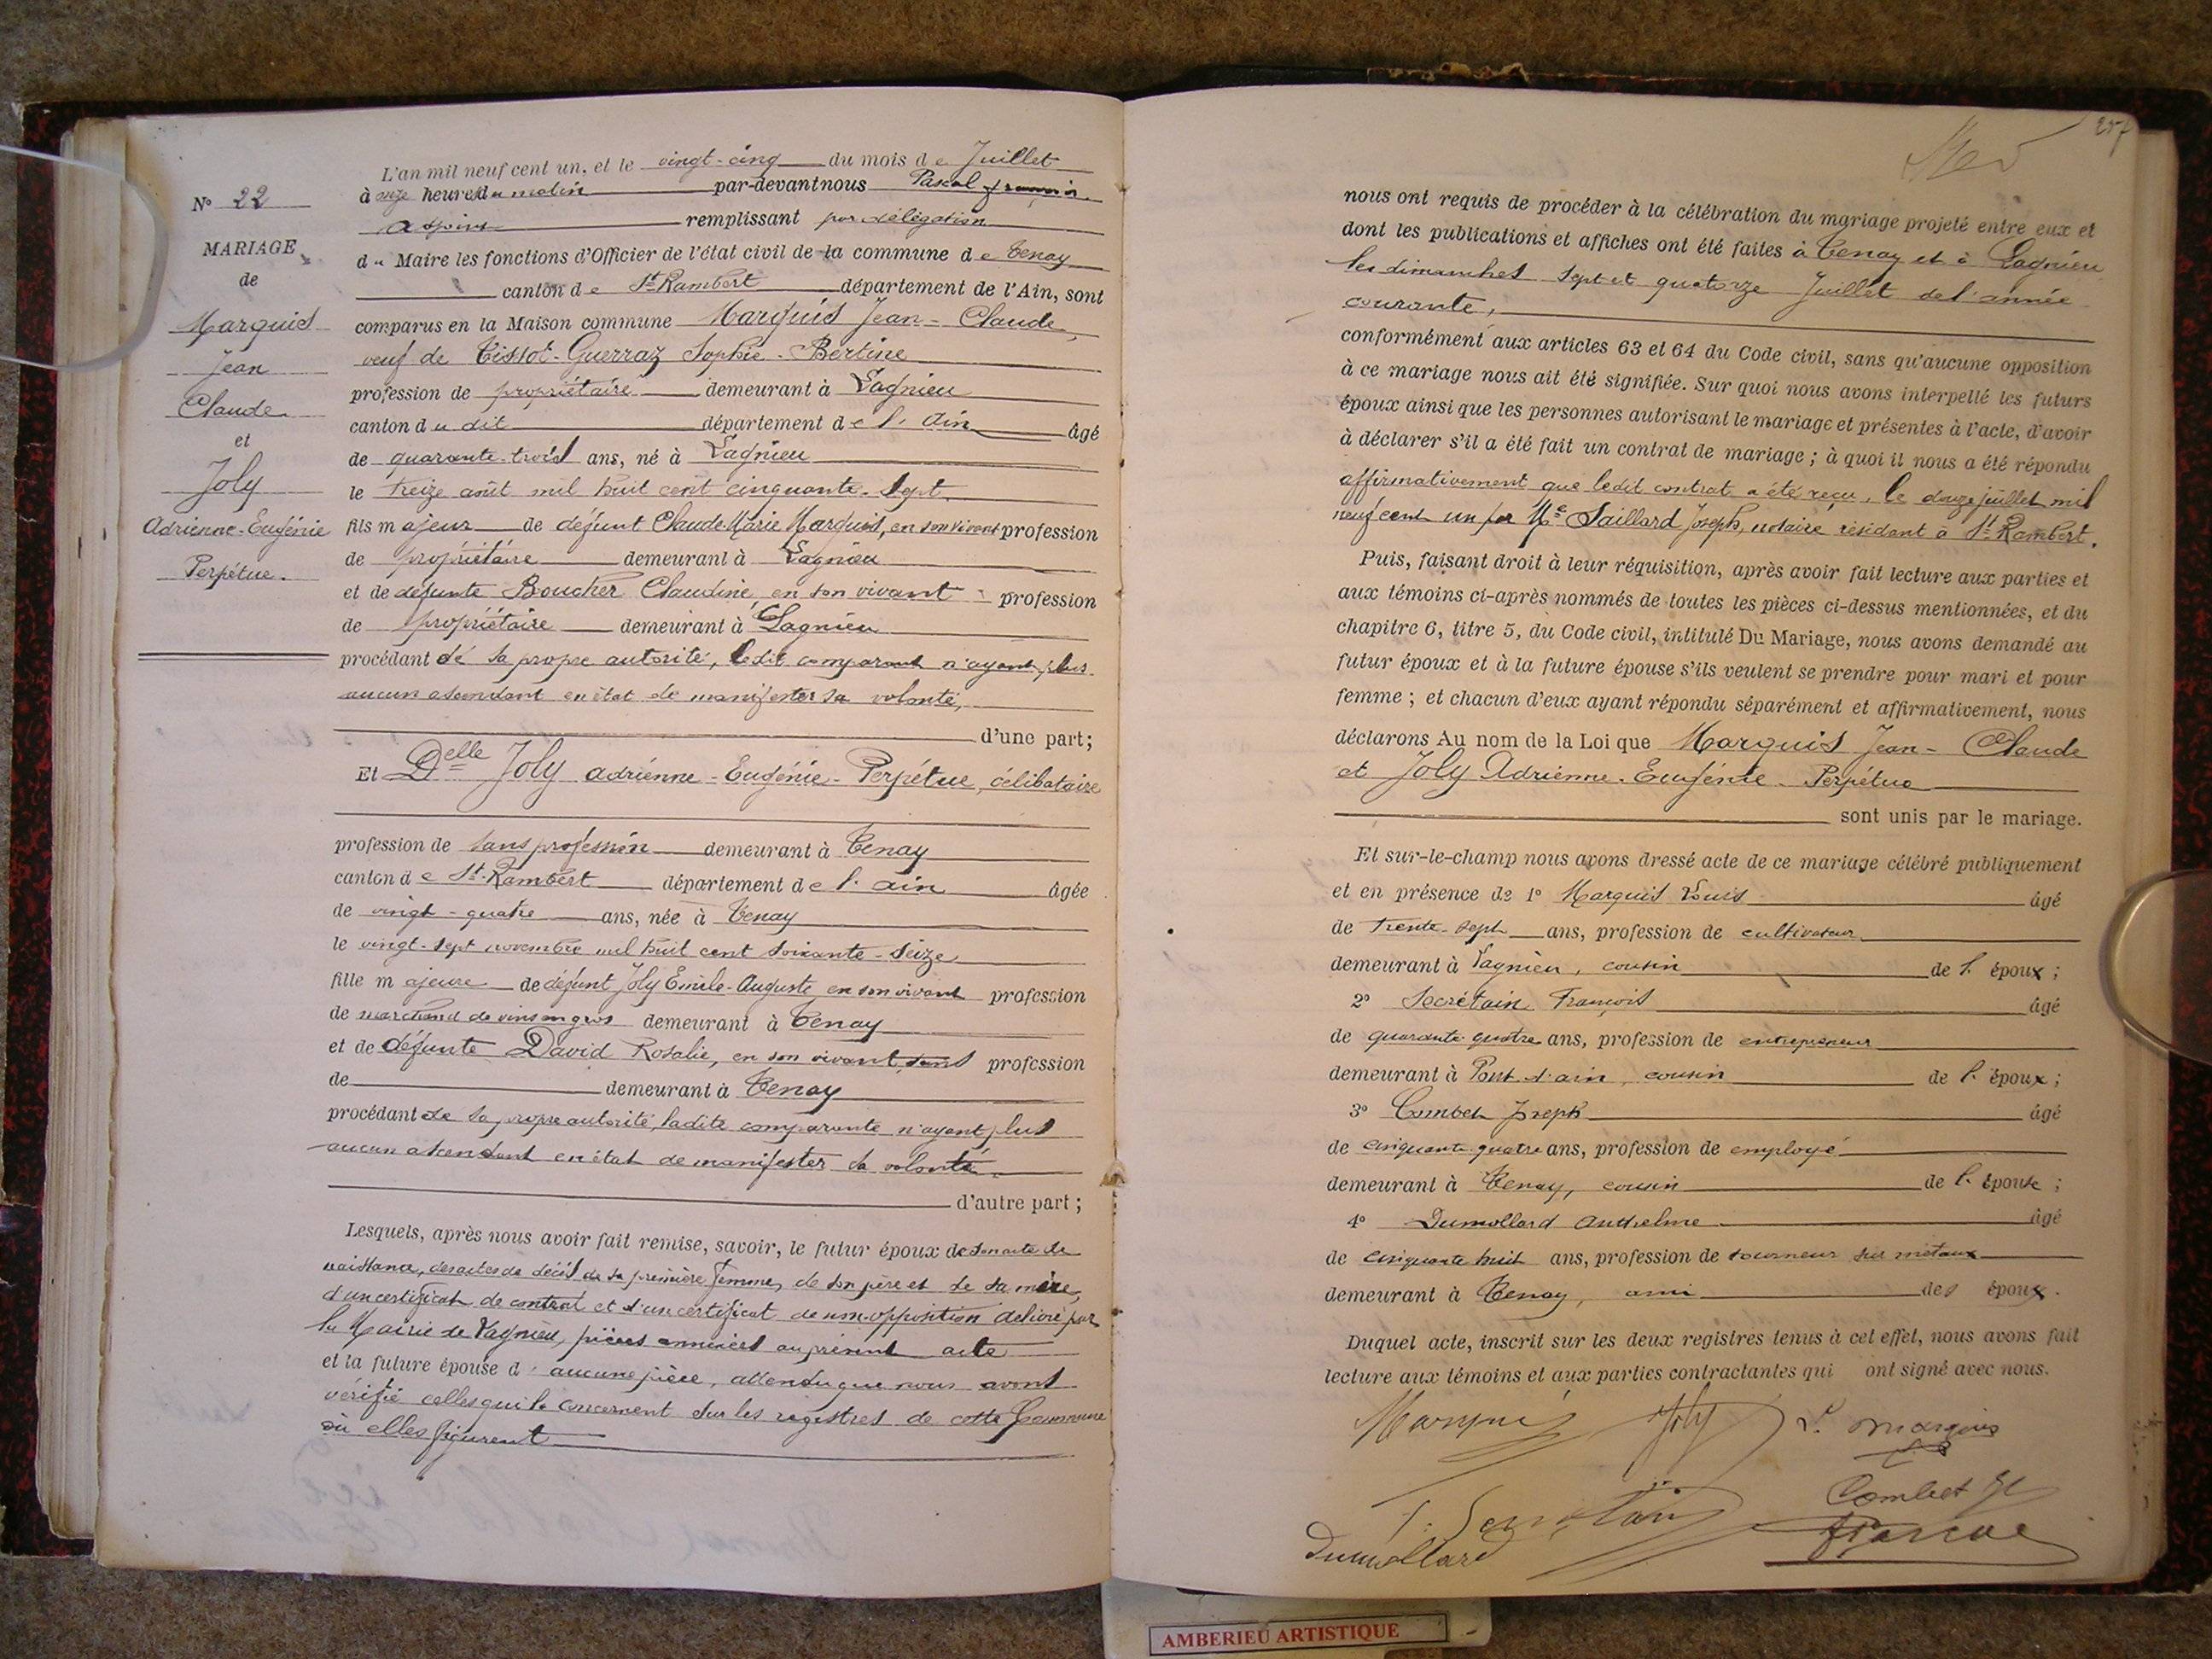 L'an mil neuf cent un, et le vingt-cinq du mois de Juillet
à onze heures du matin par-devant nous Pascal François
adjoint remplissant par délégation
du Maire les fonctions d'Officier de l'état civil de la commune de Tenay
canton de St Rambert département de l'Ain, sont
comparus en la Maison commune Marquis Jean-Claude,
veuf de Tissot-Guerraz Sophie-Bertine
profession de propriétaire demeurant à Lagnieu
canton du dit département de l'Ain âgé
de quarante-trois ans, né à Lagnieu
le treize août mil huit cent cinquante-sept,
fils majeur de défunt Claude Marie Marquis, en son vivant profession
de propriétaire demeurant à Lagnieu
et de défunte Boucher Claudine, en son vivant profession
de propriétaire demeurant à Lagnieu
procédant de sa propre autorité, ledit comparant n'ayant plus
aucun ascendant en état de manifester sa volonté,
d'une part;
Et Delle Joly Adrienne-Eugénie-Perpétue, célibataire
profession de sans profession demeurant à Tenay
canton de St-Rambert département de l'Ain âgée
de vingt-quatre ans, née à Tenay
le vingt-sept novembre mil huit cent soixante-seize
fille majeure de défunt Joly Emile-Auguste en son vivant profession
de marchand de vins en gros demeurant à Tenay
et de défunte David Rosalie, en son vivant sans profession
de demeurant à Tenay
procédant de sa propre autorité, ladite comparante n'ayant plus
aucun ascendant en état de manifester sa volonté
d'autre part;
Lesquels, après nous avoir fait remise, savoir, le futur époux de son acte de
naissance, des actes de décès de sa première femme, de son père et de sa mère,
d'un certificat de contrat et d'un certificat de non-opposition délivré par
la Mairie de Lagnieu, pièces annexées au présent acte
et la future épouse d'aucune pièce, attendu que nous avons
vérifié celles qui la concernent sur les registres de cette Commune
où elles figurent
No 22
MARIAGE
de
Marquis
Jean
Claude
et
Joly
Adrienne-Eugénie
Perpétue.
257
nous ont requis de procéder à la célébration du mariage projeté entre eux et
dont les publications et affiches ont été faites à Tenay et à Lagnieu
les dimanches sept et quatorze Juillet de l'année
courante,
conformément aux articles 63 et 64 du Code civil, sans qu'aucune opposition
à ce mariage nous ait été signifiée. Sur quoi nous avons interpellé les futurs
époux ainsi que les personnes autorisant le mariage et présentes à l'acte, d'avoir
à déclarer s'il a été fait un contrat de mariage; à quoi il nous a été répondu
affirmativement que ledit contrat a été reçu, le douze juillet mil
neuf cent un par Me Saillard Joseph, notaire résidant à St Rambert.
Puis, faisant droit à leur réquisition, après avoir fait lecture aux parties et
aux témoins ci-après nommés de toutes les pièces ci-dessus mentionnées, et du
chapitre 6, titre 5, du Code civil, intitulé Du Mariage, nous avons demandé au
futur époux et à la future épouse s'ils veulent se prendre pour mari et pour
femme; et chacun d'eux ayant répondu séparément et affirmativement, nous
déclarons Au nom de la Loi que Marquis Jean-Claude
et Joly Adrienne-Eugénie-Perpétue
sont unis par le mariage.
Et sur-le-champ nous avons dressé acte de ce mariage célébré publiquement
et en présence de 1° Marquis Louis âgé
de trente-sept ans, profession de cultivateur
demeurant à Lagnieu, cousin de l'époux;
2° Secrétain François âgé
de quarante-quatre ans, profession de entrepreneur
demeurant à Pont-d'Ain, cousin de l'époux;
3° Combet Joseph âgé
de cinquante-quatre ans, profession de employé
demeurant à Tenay, cousin de l'épouse;
4° Dumollard Anthelme âgé
de cinquante huit ans, profession de tourneur sur métaux
demeurant à Tenay, ami des époux.
Duquel acte, inscrit sur les deux registres tenus à cet effet, nous avons fait
lecture aux témoins et aux parties contractantes qui ont signé avec nous.
Marquis Joly L. Marquis
F. Secrétain Combet
Dumollard Pascal
AMBERIEU ARTISTIQUE